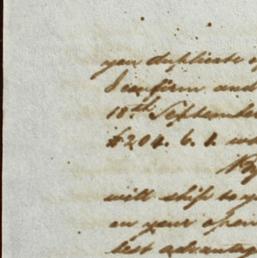 you duplicate of
I confirm and
10th September
$204. 6. 1.
My
will ship to yo
on your
best advantag